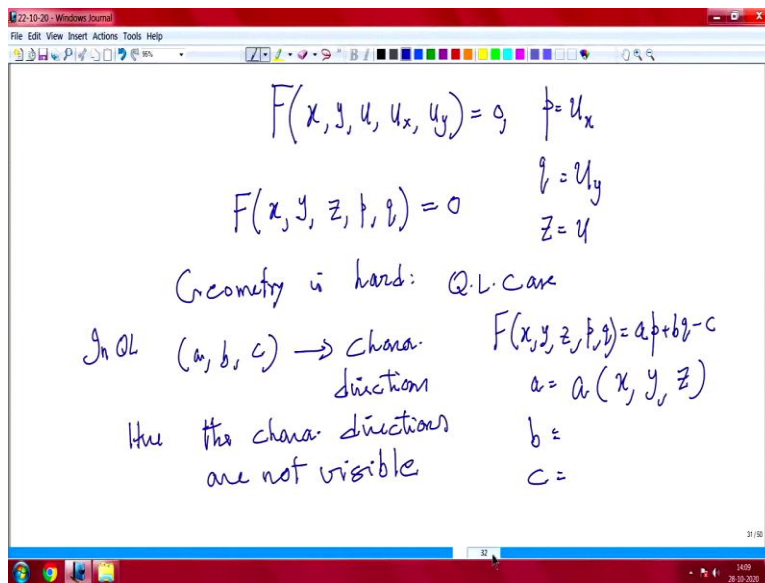 22-10-20 - Windows Journal
File Edit View Insert Actions Tools Help
96%
F(x, y, u, u_x, u_y) = 0, p = u_x
q = u_y
F(x, y, z, p, q) = 0
z = u
Geometry is hard: Q.L. Case
In QL (a, b, c) → chara. directions
F(x, y, z, p, q) = ap + bq - c
a = a(x, y, z)
Here the chara. directions are not visible
b =
c =
31/50
32
14:09
28-10-2020